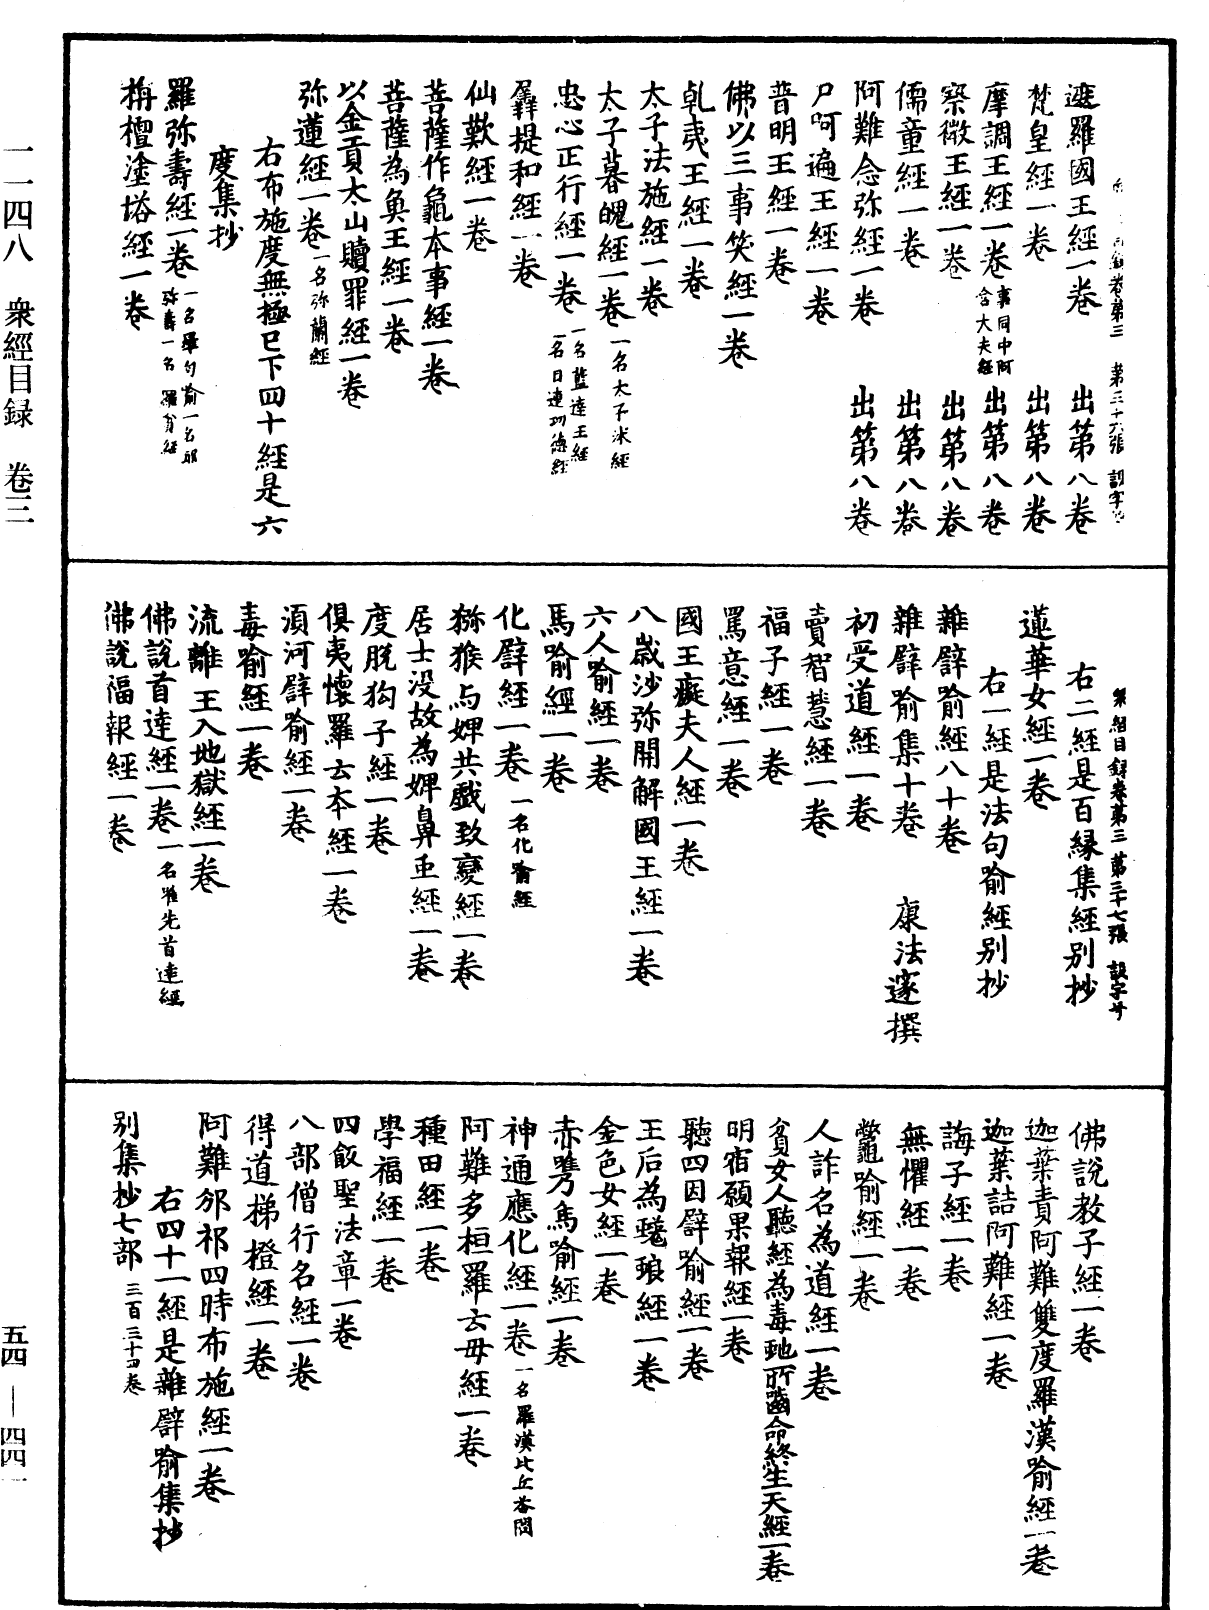 一一四八　衆經目録　卷三
衆經目録卷第三　第三十六張　設字號
遮羅國王經一卷　出第八卷
梵皇經一卷　出第八卷
摩調王經一卷　事同中阿含大夫經　出第八卷
察微王經一卷　出第八卷
儒童經一卷　出第八卷
阿難念弥經一卷　出第八卷
尸呵遍王經一卷
普明王經一卷
佛以三事笑經一卷
乹夷王經一卷
太子法施經一卷
太子暮魄經一卷　一名太子沐經
忠心正行經一卷　一名藍達王經　一名目連功德經
羼提和經一卷
仙歎經一卷
菩薩作龜本事經一卷
菩薩為魚王經一卷
以金貢太山贖罪經一卷
弥蓮經一卷　一名弥蘭經
右布施度無極已下四十經是六
度集抄
羅弥壽經一卷　一名羅旬喻一名那弥壽一名羅貧經
栴檀塗塔經一卷
衆經目録卷第三　第三十七張　設字号
右二經是百縁集經别抄
蓮華女經一卷
右一經是法句喻經别抄
雜譬喻經八十卷
雜譬喻集十卷　康法邃撰
初受道經一卷
賣智慧經一卷
福子經一卷
罵意經一卷
國王癡夫人經一卷
八歳沙弥開解國王經一卷
六人喻經一卷
馬喻經一卷
化譬經一卷　一名化喻經
猕猴与婢共戲致變經一卷
居士没故為婢鼻虫經一卷
度脱狗子經一卷
俱夷懷羅云本經一卷
湏河譬喻經一卷
毒喻經一卷
流離王入地獄經一卷
佛說首達經一卷　一名惟先首達經
佛說福報經一卷
佛說教子經一卷
迦葉責阿難雙度羅漢喻經一卷
迦葉詰阿難經一卷
誨子經一卷
無懼經一卷
鼈喻經一卷
人詐名為道經一卷
貧女人聽經為毒虵所齧命終生天經一卷
明宿願果報經一卷
聽四因譬喻經一卷
王后為蜣蜋經一卷
金色女經一卷
赤觜烏喻經一卷
神通應化經一卷　一名羅漢比丘荅問
阿難多桓羅云母經一卷
種田經一卷
學福經一卷
四飯聖法章一卷
八部僧行名經一卷
得道梯橙經一卷
阿難邠祁四時布施經一卷
右四十一經是雜譬喻集抄
别集抄七部　三百三十四卷
五四—四四一